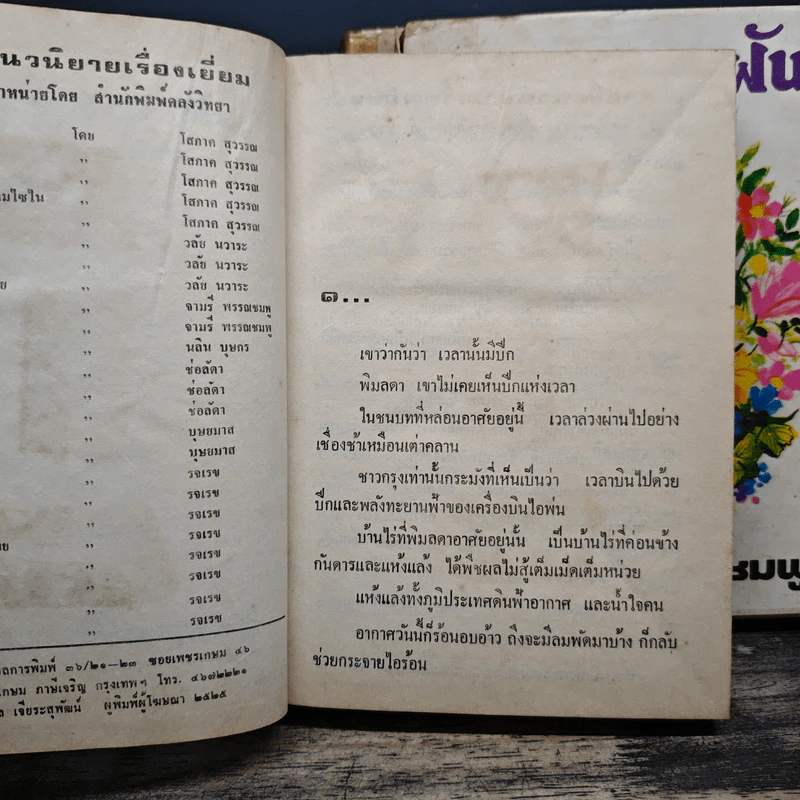 นวนิยายเรื่องเยี่ยม
าหน่ายโดย สำนักพิมพ์คลังวิทยา
โดย โสภาค สุวรรณ
,, โสภาค สุวรรณ
,, โสภาค สุวรรณ
มไซใน ,, โสภาค สุวรรณ
,, โสภาค สุวรรณ
,, วลัย นวาระ
,, วลัย นวาระ
ย ,, วลัย นวาระ
,, จามรี พรรณชมพู
,, จามรี พรรณชมพู
,, นลิน บุษกร
,, ช่อลัดา
,, ช่อลัดา
,, ช่อลัดา
,, บุษยมาส
,, บุษยมาส
,, รจเรข
,, รจเรข
,, รจเรข
,, รจเรข
าย ,, รจเรข
,, รจเรข
,, รจเรข
,, รจเรข
ลการพิมพ์ ๓๖/๒๑—๒๓ ซอยเพชรเกษม ๔๖
เกษม ภาษีเจริญ กรุงเทพฯ โทร. ๔๖๗๒๒๒๑
ล เจียระสุพัฒน์ ผู้พิมพ์ผู้โฆษณา ๒๕๒๕
๑...
เขาว่ากันว่า เวลานั้นมีปีก
พิมลดา เขาไม่เคยเห็นปีกแห่งเวลา
ในชนบทที่หล่อนอาศัยอยู่นี้ เวลาล่วงผ่านไปอย่าง
เชื่องช้าเหมือนเต่าคลาน
ชาวกรุงเท่านั้นกระมังที่เห็นเป็นว่า เวลาบินไปด้วย
ปีกและพลังทะยานฟ้าของเครื่องบินไอพ่น
บ้านไร่ที่พิมลดาอาศัยอยู่นั้น เป็นบ้านไร่ที่ค่อนข้าง
กันดารและแห้งแล้ง ได้พืชผลไม่สู้เต็มเม็ดเต็มหน่วย
แห้งแล้งทั้งภูมิประเทศดินฟ้าอากาศ และน้ำใจคน
อากาศวันนี้ก็ร้อนอบอ้าว ถึงจะมีลมพัดมาบ้าง ก็กลับ
ช่วยกระจายไอร้อน
ฝัน
ชมพู